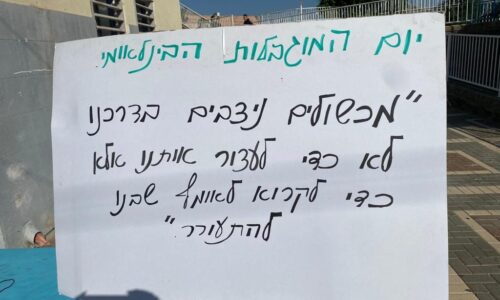 יום המוגבלות הבינלאומי
"מכשולים ניצבים בדרכנו
לא כדי לעצור אותנו אלא
כדי לקרוא לאומץ שבנו
להתעורר"